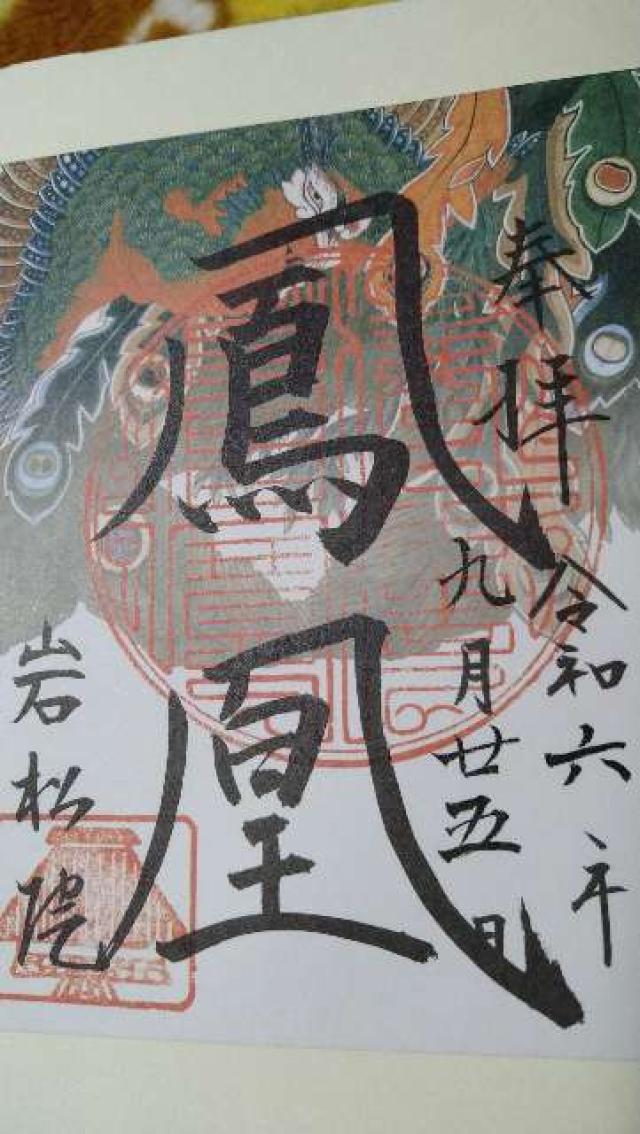 奉拝
令和六年
九月廿五日
鳳凰
岩松院